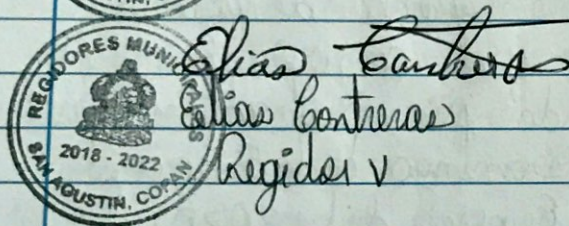 REGIDORES MUNICIPALES
2018 - 2022
SAN AGUSTIN, COPAN
Elias Contreras
Elias Contreras
Regidor V